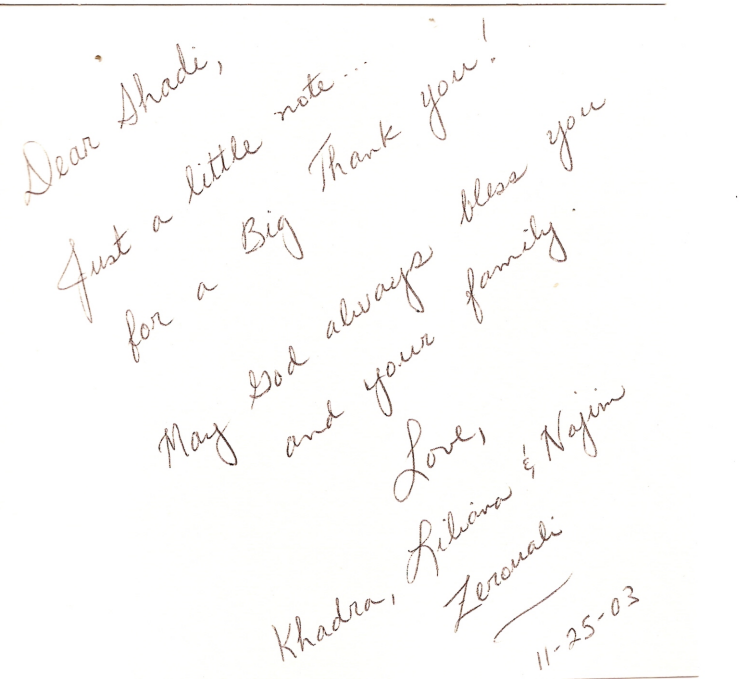 Dear Shadi,
Just a little note...
for a Big Thank you!
May God always bless you
and your family.
Love,
Khadra, Liliana & Najim
Zerouali
11-25-03